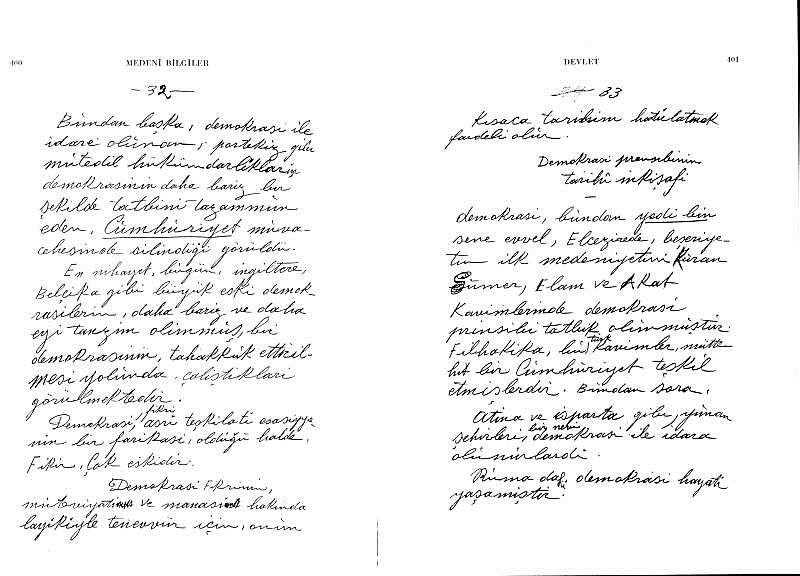 400
MEDENÎ BİLGİLER
-32-
Bundan başka, demokrasi ile
idare olunan, portekiz gibi
mütedil hükümdarlıkların
demokrasinin daha bariz bir
şekilde tatbikini tazammün
eden, Cümhuriyet müva-
cehesinde silindiği görüldü.
En nihayet, bugün, ingiltere,
Belçika gibi büyük eski demok-
rasilerin, daha bariz ve daha
eyi tanzim olunmuş, bir
demokrasinin, tahakkük ettiril-
mesi yolunda, çalıştıkları
görülmektedir.
Demokrasi, fikri
asrî teşkilatı esasiyye-
nin bir farikası, olduğu halde,
Fikir, Çok eskidir.
Demokrasi Fikrinin,
ve manası hakında
layikiyle tenevvür için, onun
DEVLET
401
33
Kısaca tarihini hatırlatmak
faideli olur.
Demokrasi prensibinin
tarihî inkişafı
demokrasi, bundan yedi bin
sene evvel, Elcezirede, beşeriye-
tin ilk medeniyetini Kuran
Sümer, Elam ve Akat
Kavimlerinde demokrasi
prinsibi tatbik olunmuştur.
Filhakika, bu türk Kavimler, mütte-
hit bir Cümhuriyet teşkil
etmişlerdir. Bundan sora,
Atina ve isparta gibi, yunan
şehirleri, bir nevi demokrasi ile idare
olunurlardı.
Ruma da, demokrasi hayatı
yaşamıştır.